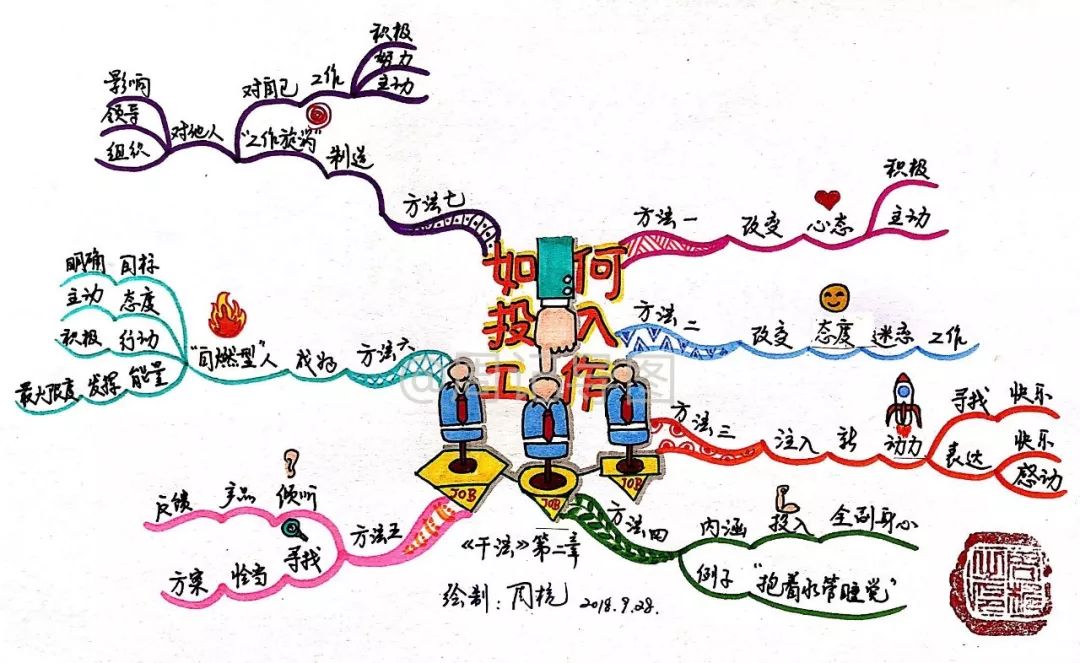 如何
投入
工作
方法一
改变
心态
积极
主动
方法二
改变
态度
迷恋
工作
方法三
注入
新
动力
寻找
快乐
表达
快乐
感动
方法四
内涵
投入
全副身心
例子
"抱着水管睡觉"
方法五
倾听
产品
反馈
寻找
恰当
方案
方法六
成为
"自燃型"人
明确
目标
主动
态度
积极
行动
最大限度
发挥
能量
方法七
制造
"工作旋涡"
对自己
工作
积极
努力
主动
对他人
影响
领导
组织
JOB
JOB
JOB
《干法》第二章
绘制：
2018.9.28.